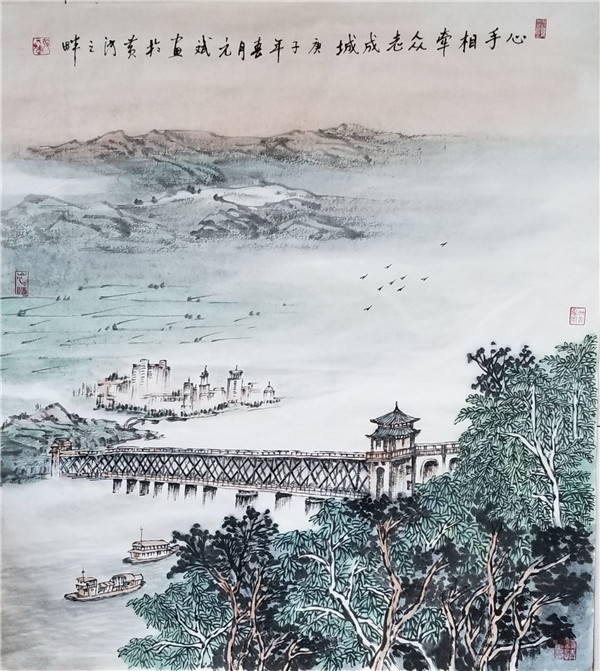 心手相牵众志成城庚子年春月元斌画於黄河之畔